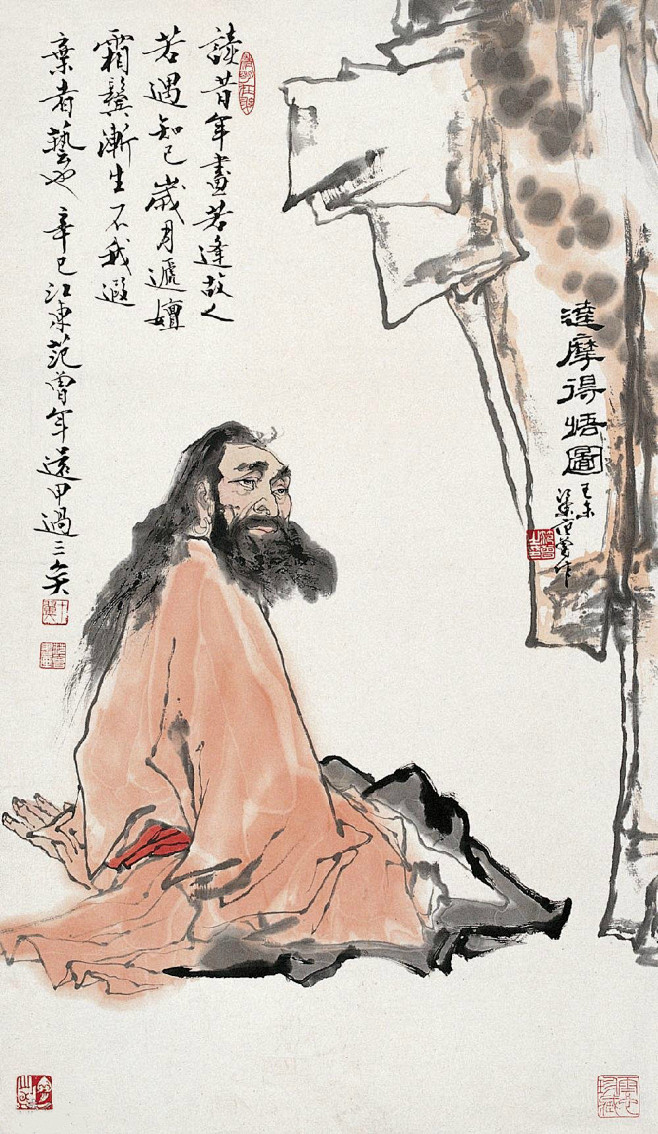 達摩得悟圖
范曾作
讀昔年畫若逢故人
若遇知己歲月遞嬗
霜鬢漸生不我遐
棄者藝也 辛巳江東范曾年還甲過三矣